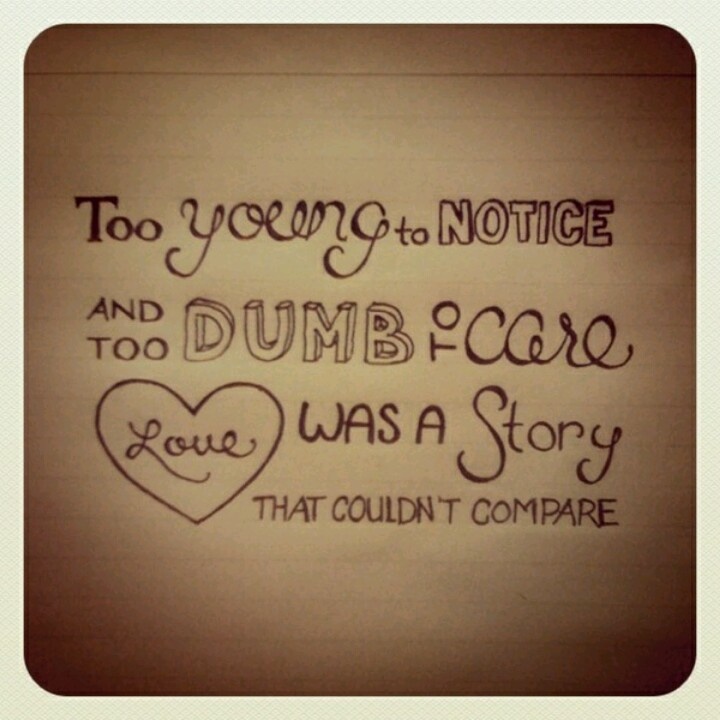 Too young to NOTICE
AND TOO DUMB TO Care
Love WAS A Story
THAT COULDN'T COMPARE